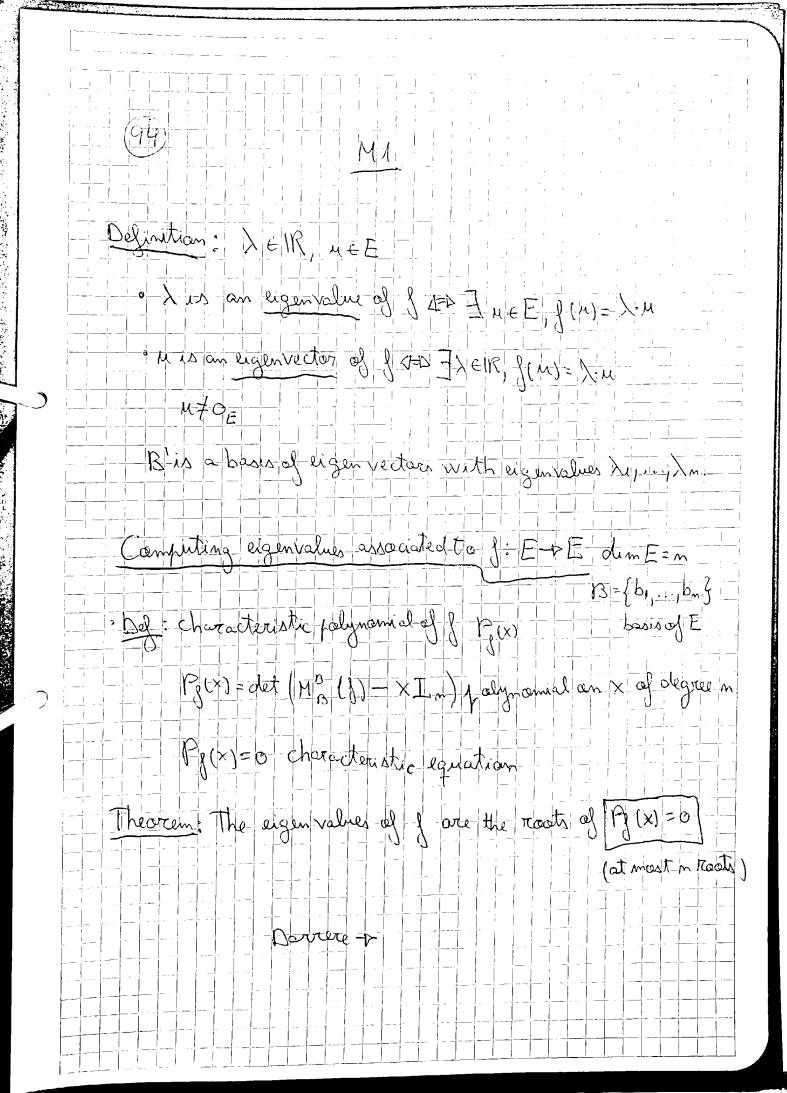 94
M1
Definition: λ ∈ ℝ, u ∈ E
• λ is an eigenvalue of f ⇔ ∃ u ∈ E, f(u) = λ·u
• u is an eigenvector of f ⇔ ∃ λ ∈ ℝ, f(u) = λ·u
u ≠ 0_E
B' is a basis of eigen vectors with eigenvalues λ₁,...,λₙ.
Computing eigenvalues associated to f: E → E dim E = n
B = {b₁,...,bₙ}
basis of E
• Def: characteristic polynomial of f P_f(x)
P_f(x) = det (M_B^B (f) - x Iₙ) polynomial on x of degree n
P_f(x) = 0 characteristic equation
Theorem: The eigenvalues of f are the roots of P_f(x) = 0
(at most n roots)
Darrere →